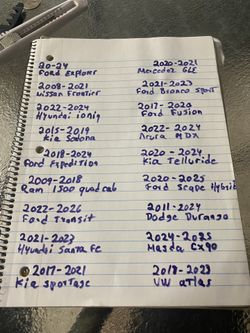 20-24
Ford Explorer
2008-2021
Nissan Frontier
2022-2024
Hyundai ioniq
2015-2019
Kia Sedona
2018-2024
Ford Expedition
2009-2018
Ram 1500 quad cab
2022-2026
Ford Transit
2021-2023
Hyundai Santa Fc
2017-2021
Kia sportage
2020-2021
Mercedez GLE
2021-2023
Ford Bronco Sport
2017-2020
Ford Fusion
2022-2024
Acura MDX
2020-2024
Kia Telluride
2020-2025
Ford Scape Hybrid
2011-2024
Dodge Durango
2024-2025
Masda CX90
2018-2023
VW atlas